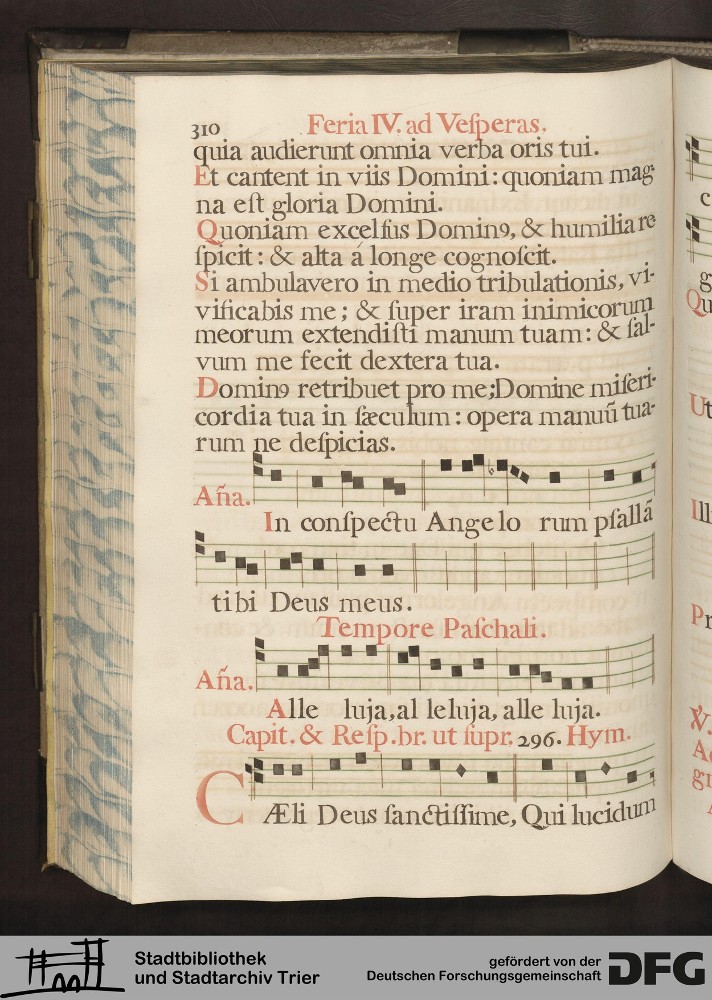 310 Feria IV. ad Veſperas.
quia audierunt omnia verba oris tui.
Et cantent in viis Domini: quoniam mag-
na eſt gloria Domini.
Quoniam excelſus Domin9, & humilia re
ſpicit: & alta á longe cognoſcit.
Si ambulavero in medio tribulationis, vi-
vificabis me; & ſuper iram inimicorum
meorum extendiſti manum tuam: & ſal-
vum me fecit dextera tua.
Domin9 retribuet pro me; Domine miſeri-
cordia tua in ſæculum: opera manuū tua-
rum ne deſpicias.
Aña.
In conſpectu Angelo rum pſallā
tibi Deus meus.
Tempore Paſchali.
Aña.
Alle luja, al leluja, alle luja.
Capit. & Reſp. br. ut ſupr. 296. Hym.
CÆli Deus ſanctiſſime, Qui lucidum
c
g
Qu
Ut
Ill
Pr
V.
A
gr
Stadtbibliothek
und Stadtarchiv Trier
gefördert von der
Deutschen Forschungsgemeinschaft
DFG